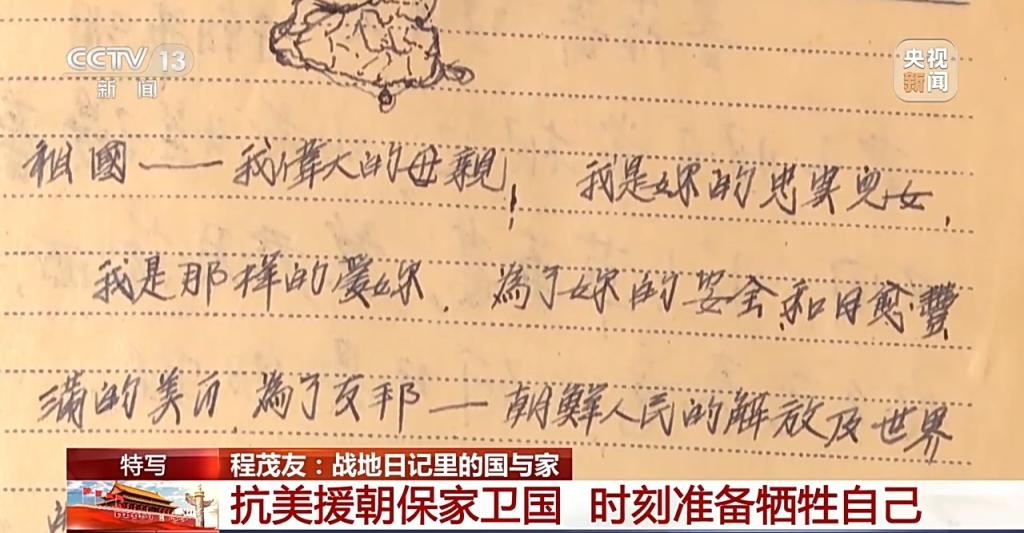 CCTV 13
新闻
央视
新闻
祖國——我偉大的母親！ 我是妳的忠实兒女，
我是那样的愛妳．為了妳的安全和日愈豐
满的美 為了友邦——朝鮮人民的解放及世界
特写
程茂友：战地日记里的国与家
抗美援朝保家卫国 时刻准备牺牲自己